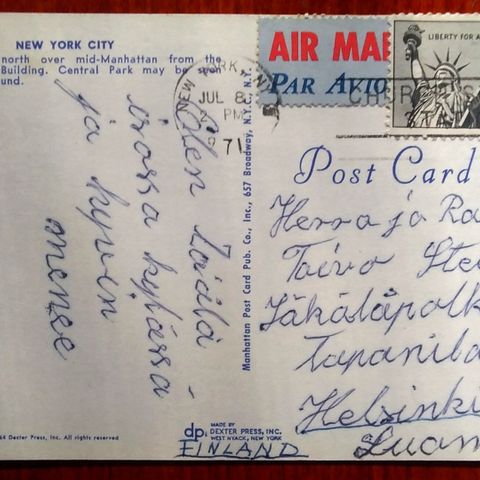 NEW YORK CITY
north over mid-Manhattan from the
Building. Central Park may be seen
und.
Olen täällä
isossa kylässä
ja hyvin
menee
64 Dexter Press, Inc. All rights reserved
Manhattan Post Card Pub. Co., Inc., 657 Broadway, N.Y.C., N.Y.
dp
MADE BY
DEXTER PRESS, INC.
WEST NYACK, NEW YORK
NEW YORK, N.Y.
JUL 8
PM
1971
AIR MAI
PAR AVIO
LIBERTY FOR A
CHURCH S
STA
Post Card
Herra ja Ro
Toivo Ste
Jäkäläpolk
Tapanila
Helsinki
Suom
FINLAND